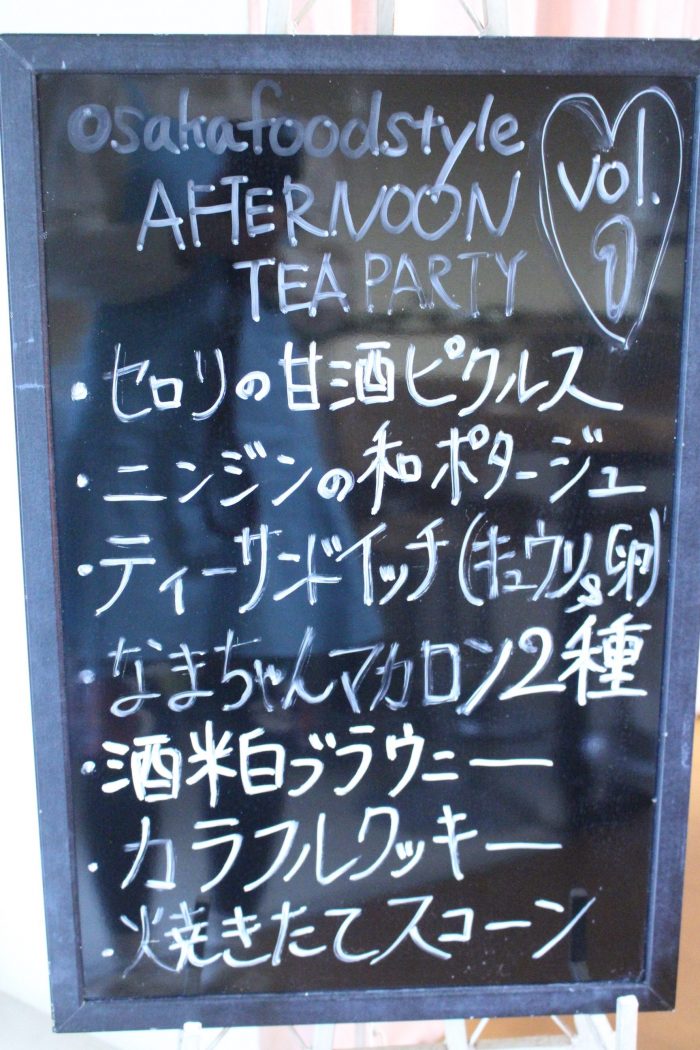 osakafoodstyle
AFTERNOON
TEA PARTY
vol.
1
・セロリの甘酒ピクルス
・ニンジンの和ポタージュ
・ティーサンドイッチ(キュウリ&卵)
・なまちゃんマカロン2種
・酒米白ブラウニー
・カラフルクッキー
・焼きたてスコーン